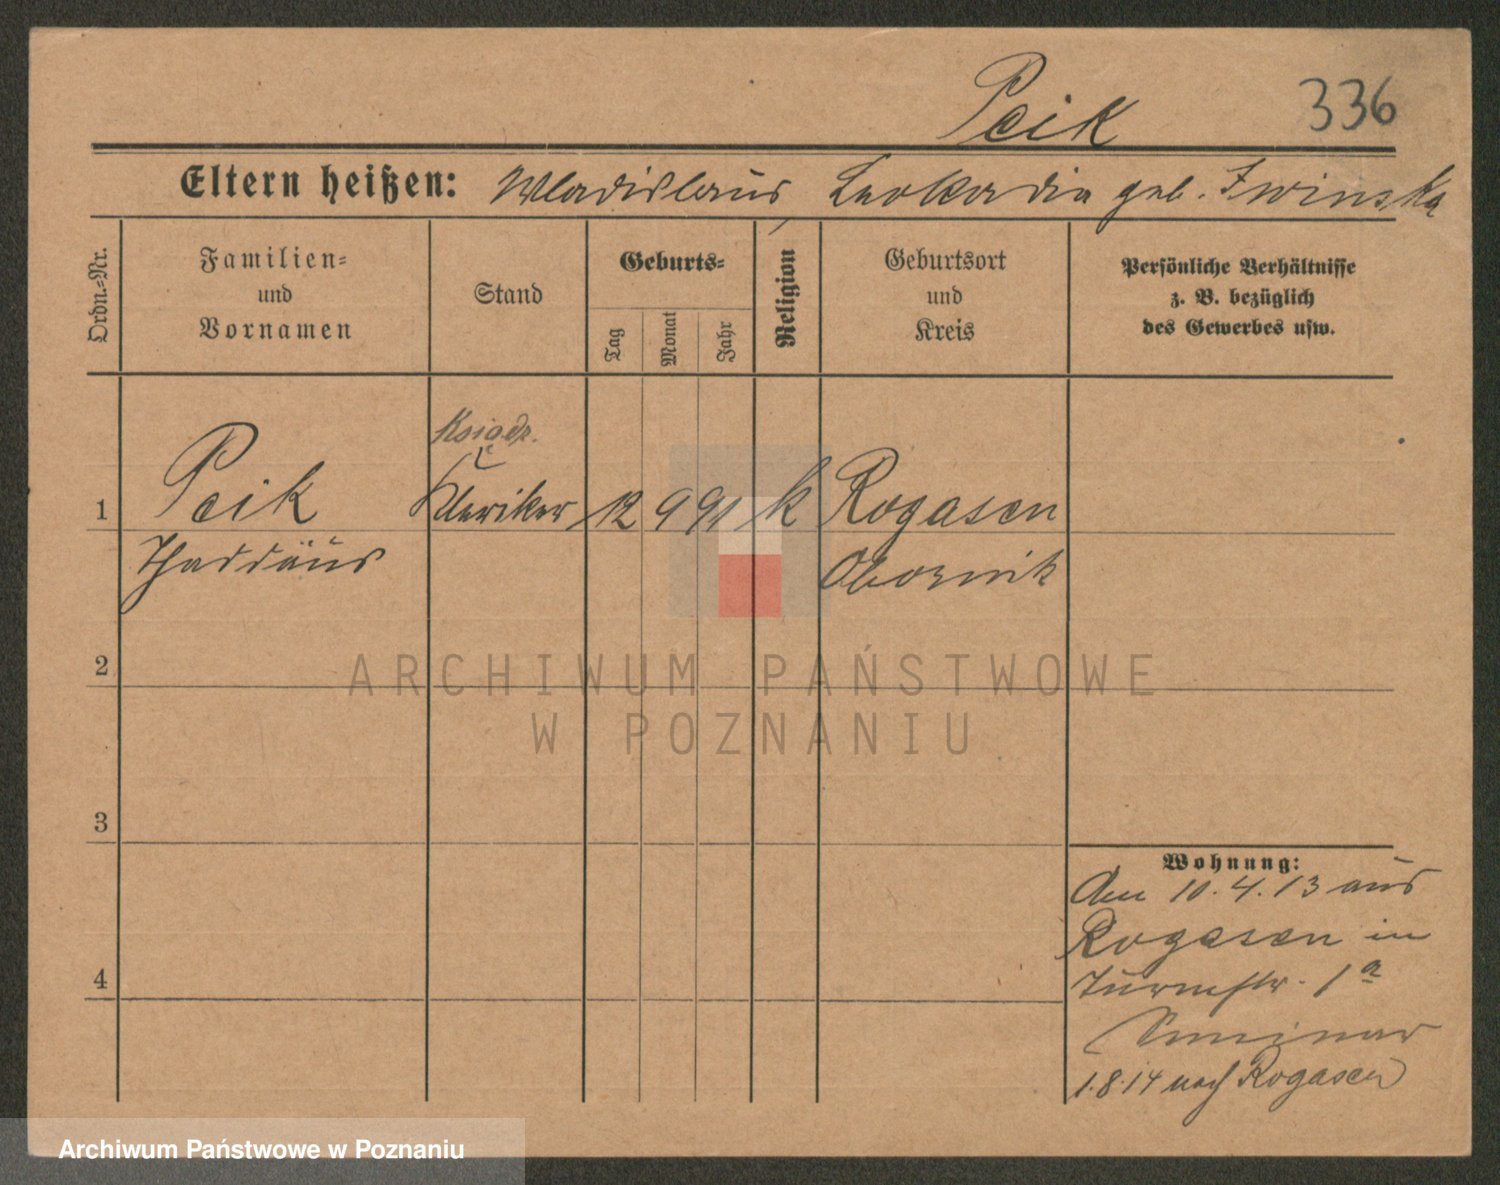 Pcik 336
Eltern heißen: Wladislaus Leokadia geb. Zwinska
Ordn.-Nr.
Familien-
und
Vornamen
Stand
Geburts-
Tag
Monat
Jahr
Religion
Geburtsort
und
Kreis
Persönliche Verhältnisse
z. B. bezüglich
des Gewerbes usw.
Ksiądz.
1 Pcik Kleriker 12 9 91 k Rogasen
Thaddäus Obornik
2
ARCHIWUM PAŃSTWOWE
W POZNANIU
3
Wohnung:
Am 10.4.13 aus
Rogasen in
4
Turmstr. 1a
Seminar
1.8.14 nach Rogasen
Archiwum Państwowe w Poznaniu